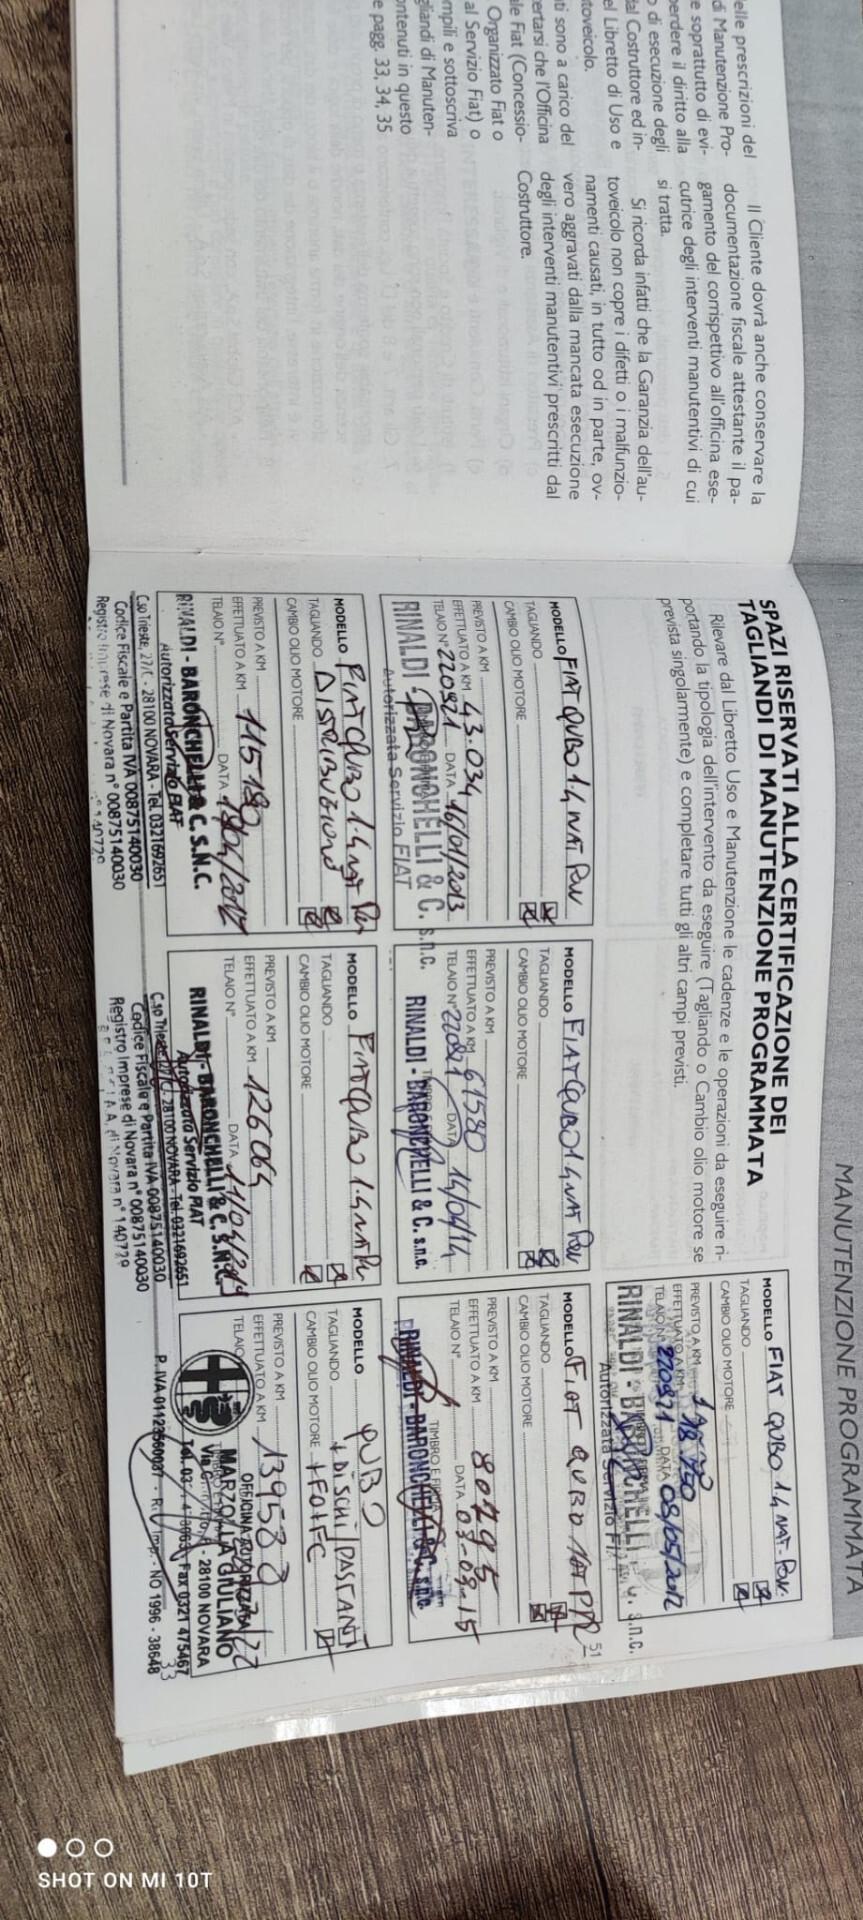 MANUTENZIONE PROGRAMMATA
elle prescrizioni del
di Manutenzione Pro-
e soprattutto di evi-
perdere il diritto alla
o di esecuzione degli
dal Costruttore ed in-
el Libretto di Uso e
toveicolo.
ti sono a carico del
ertarsi che l'Officina
le Fiat (Concessio-
Organizzato Fiat o
al Servizio Fiat) o
mpili e sottoscriva
gliandi di Manuten-
ontenuti in questo
e pagg. 33, 34, 35
Il Cliente dovrà anche conservare la
documentazione fiscale attestante il pa-
gamento del corrispettivo all'officina ese-
cutrice degli interventi manutentivi di cui
si tratta.
Si ricorda infatti che la Garanzia dell'au-
toveicolo non copre i difetti o i malfunzio-
namenti causati, in tutto od in parte, ov-
vero aggravati dalla mancata esecuzione
degli interventi manutentivi prescritti dal
Costruttore.
SPAZI RISERVATI ALLA CERTIFICAZIONE DEI
TAGLIANDI DI MANUTENZIONE PROGRAMMATA
Rilevare dal Libretto Uso e Manutenzione le cadenze e le operazioni da eseguire ri-
portando la tipologia dell'intervento da eseguire (Tagliando o Cambio olio motore se
prevista singolarmente) e completare tutti gli altri campi previsti.
MODELLO FIAT QUBO 1.4 NAT. POW.
TAGLIANDO
CAMBIO OLIO MOTORE
PREVISTO A KM
EFFETTUATO A KM
TELAIO N° 220921 DATA 08/05/2012
RINALDI - BARONCHELLI & C. s.n.c.
Autorizzata Servizio FIAT
MODELLO FIAT QUBO 1.4 NAT. POW
TAGLIANDO
CAMBIO OLIO MOTORE
PREVISTO A KM
EFFETTUATO A KM 43.034
TELAIO N° 220921 DATA 16/01/2013
RINALDI - BARONCHELLI & C. s.n.c.
Autorizzata Servizio FIAT
MODELLO FIAT QUBO 1.4 NAT. POW
TAGLIANDO
CAMBIO OLIO MOTORE
PREVISTO A KM
EFFETTUATO A KM 61580
TELAIO N° 220921 DATA 14/04/14
RINALDI - BARONCHELLI & C. s.n.c.
MODELLO FIAT QUBO
TAGLIANDO
CAMBIO OLIO MOTORE
PREVISTO A KM
EFFETTUATO A KM 80795
TELAIO N° DATA 03-15
TIMBRO E FIRMA
RINALDI - BARONCHELLI & C. s.n.c.
51
MODELLO FIAT QUBO 1.4 NAT Pow
TAGLIANDO DISTRIBUZIONE
CAMBIO OLIO MOTORE
PREVISTO A KM
EFFETTUATO A KM 115180
TELAIO N° DATA
RINALDI - BARONCHELLI & C. S.N.C.
Autorizzata Servizio FIAT
C.so Trieste, 27/C - 28100 NOVARA - Tel. 0321692651
Codice Fiscale e Partita IVA 00875140030
Registro Imprese di Novara n° 00875140030
MODELLO FIAT QUBO 1.4 NAT Pow
TAGLIANDO
CAMBIO OLIO MOTORE
PREVISTO A KM
EFFETTUATO A KM 126064
TELAIO N° DATA
RINALDI - BARONCHELLI & C. S.N.C.
Autorizzata Servizio FIAT
C.so Trieste 27/C - 28100 NOVARA - Tel. 0321692651
Codice Fiscale e Partita IVA 00875140030
Registro Imprese di Novara n° 00875140030
R.E.A. di Novara n° 140729
MODELLO QUBO
TAGLIANDO + DISCHI/PASTANT
CAMBIO OLIO MOTORE + FO+FC
PREVISTO A KM
EFFETTUATO A KM 139580
TELAIO
OFFICINA AUTORIZZATA
MARZOLLA GIULIANO
28100 NOVARA
Fax 0321 475467
NO 1996 - 38648
33
SHOT ON MI 10T